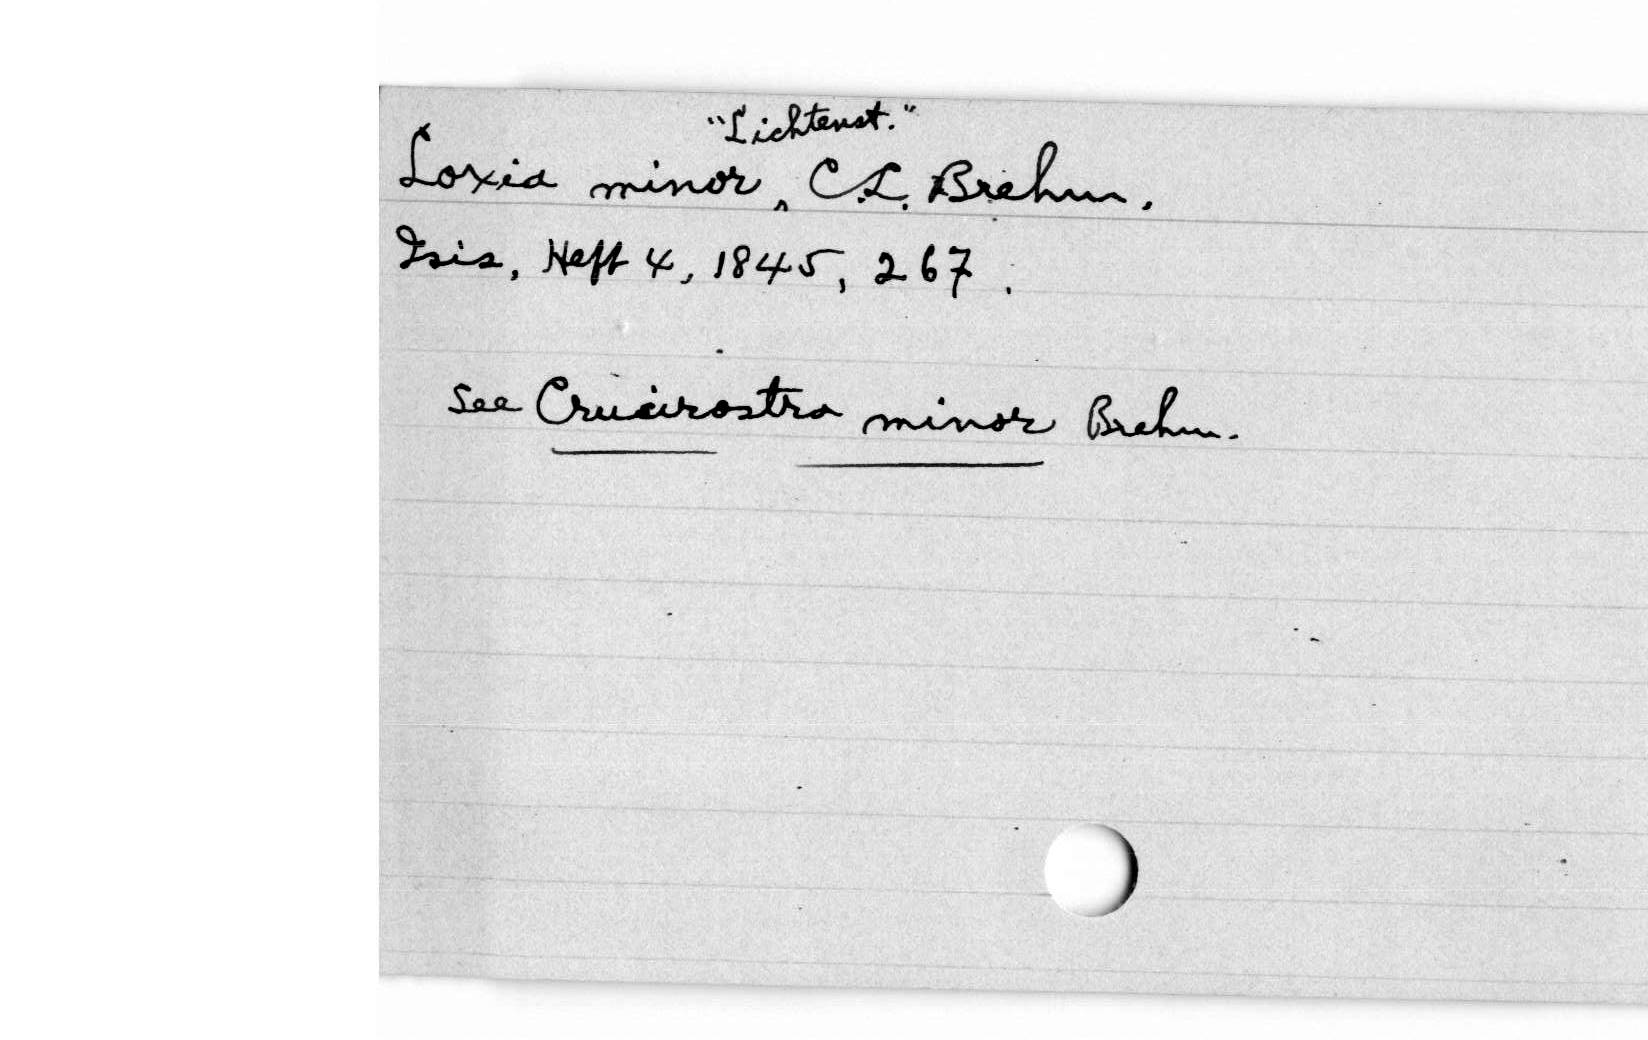 "Lichtenst."
Loxia minor ‸ C.L. Brehm.
Isis, Heft 4, 1845, 267.
see Crucirostra minor Brehm.